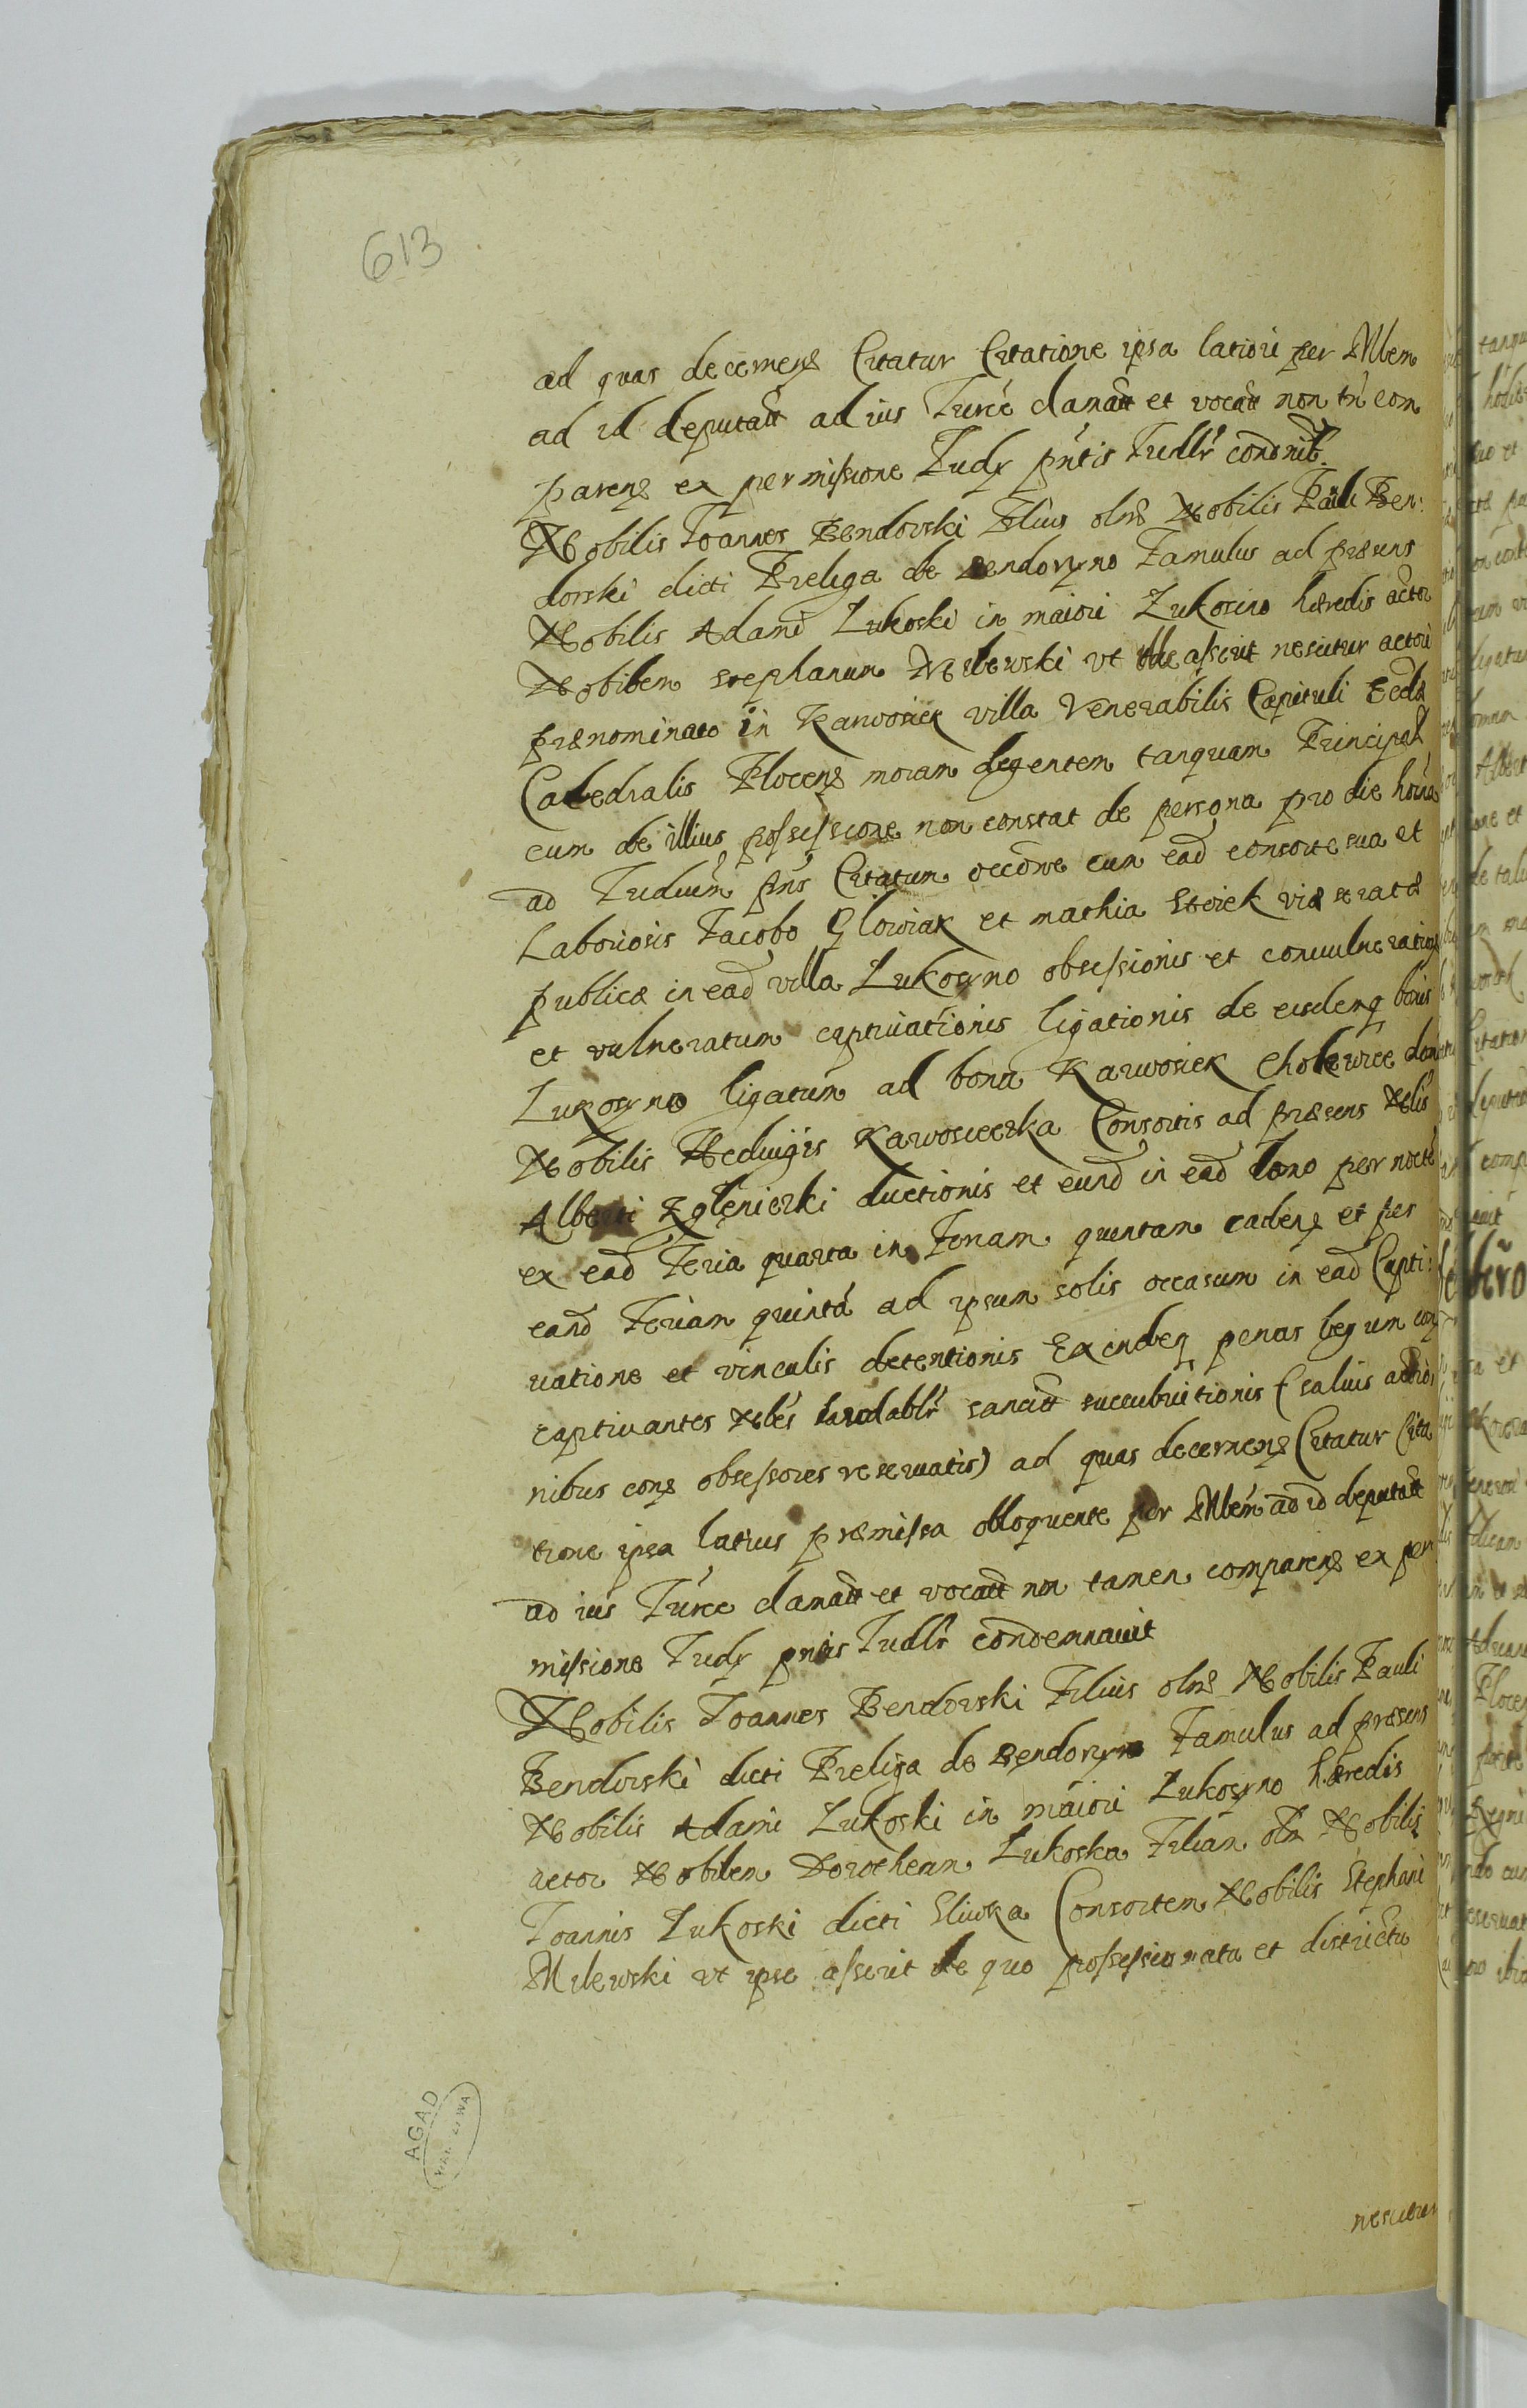 613
ad quas decernens Citatur Citatione ipsa latiori per Mlem
ad id deputatt ad ius Turce clamatt et vocatt non tn com
parens ex permissione Judy pntis Judlr condnit.
Nobilis Joannes Bendorski Filius olm Nobilis Pauli Ben:
dorski dicti Preliga de Bendorzyno Famulus ad præsens
Nobilis Adami Lukoski in maiori Lukoszino hæredis actor
Nobilem Stephanum Milewski vt ille asserit nescitur actori
prænominato in Karwosiek villa Venerabilis Capituli Eccle
Catedralis Plocens moram degentem tanquam Principal
cum de illius possessione non constat de persona pro die hoina
ad Judium pns Citatum occone cum ead consorte sua et
Laboriosis Jacobo Glowiak et mathia viæ stratæ
publicæ in ead villa Lukoszno obsessionis et convulnerations
et vulneratum captiuationis ligationis de eisdemq bonis
Lukoszno ligatum ad bona Karwosiek Cholewice
Nobilis Heduigis Karwosieczka Consortis ad præsens Nblis
Alberti Zgleniczki ductionis et eund in ead domo per nocte
ex ead Feria quarta in Feriam quintam cadens et per
eand Feriam quinta ad ipsum solis occasum in ead Capti:
uatione et vinculis detentionis Exindeq penas legum con
captiuantes Nbles laudablr sancitt succubuitionis (saluis actio
nibus cons obsessores reseruatis) ad quas decernens Citatur Cita
tione ipsa latius præmissa obloquente per Mlem ad id deputatt
ad ius Turce clamatt et vocatt non tamen comparens ex per
missione Judy pntis Judlr condemnauit
Nobilis Joannes Bendorski Filius olm Nobilis Pauli
Bendorski dicti Preliga de Bendorzyno Famulus ad præsens
Nobilis Adami Lukoski in maiori Lukoszno hæredis
actor Nobilem Dorotheam Lukoska Filiam olm Nobilis
Joannis Lukoski dicti Sliwka Consortem Nobilis Stephani
Milewski vt ipse asserit de quo possessionata et districtu
nescitur
AGAD
WARSZAWA